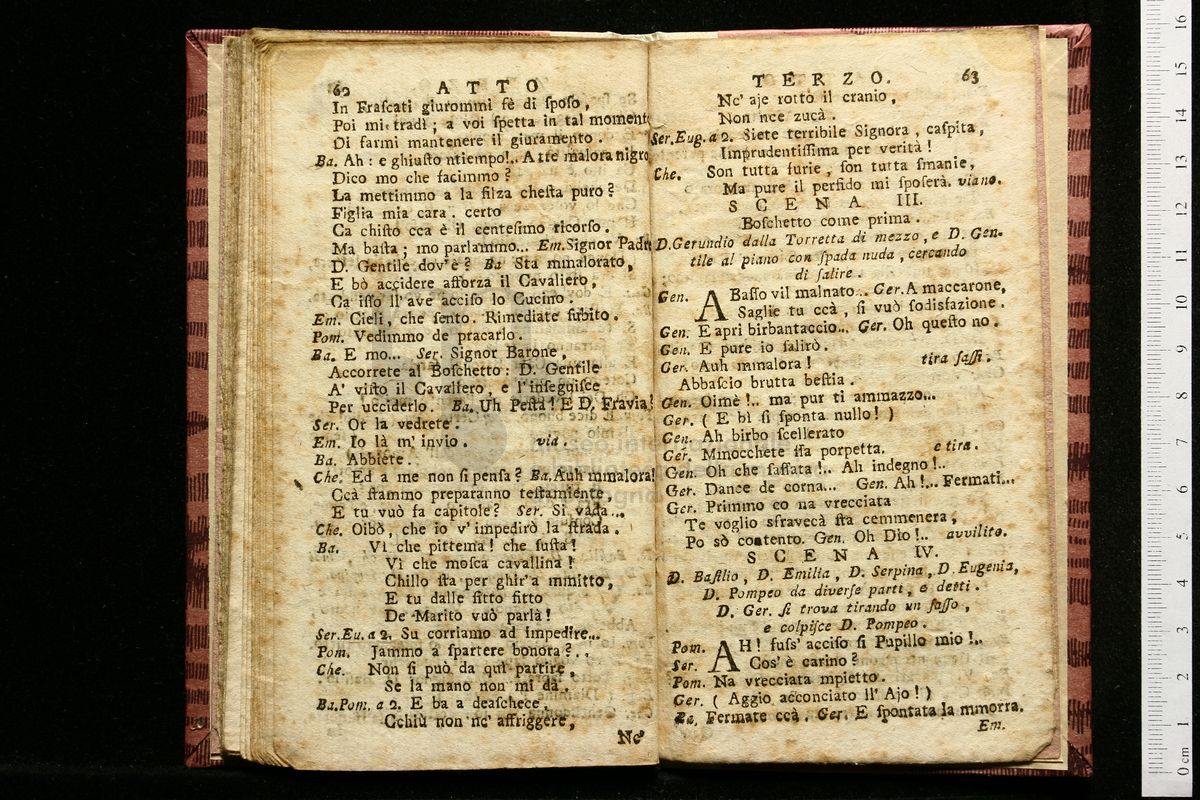 62 ATTO
In Fraſcati giurommi fè di ſpoſo,
Poi mi tradì; a voi ſpetta in tal moment
Di farmi mantenere il giuramento.
Ba. Ah: e ghiuſto ntiempo!.. A tre malora nigro
Dico mo che facimmo?
La mettimmo a la filza cheſta puro?
Figlia mia cara. certo
Ca chiſto cca è il centeſimo ricorſo.
Ma baſta; mo parlammo... Em. Signor Padre
D. Gentile dov'è? Ba Sta mmalorato,
E bò accidere afforza il Cavaliero,
Ca iſſo ll'ave acciſo lo Cucino.
Em. Cieli, che ſento. Rimediate ſubito.
Pom. Vedimmo de pracarlo.
Ba. E mo... Ser. Signor Barone,
Accorrete al Boſchetto: D. Gentile
A' viſto il Cavaliero, e l'inſeguiſce
Per ucciderlo. Ba. Uh Peſta! E D. Fravia!
Ser. Or la vedrete.
Em. Io là m'invio. via.
Ba. Abbiete.
Che. Ed a me non ſi penſa? Ba. Auh mmalora!
Ccà ſtammo preparanno teſtamiente
E tu vuò fa capitole? Ser. Si vada...
Che. Oibò, che io v'impedirò la ſtrada.
Ba. Vì che pittema! che ſuſta!
Vì che moſca cavallina!
Chillo ſta per ghir'a mmitto,
E tu dalle fitto fitto
De Marito vuò parlà!
Ser.Eu. a 2. Su corriamo ad impedire...
Pom. Jammo a ſpartere bonora?..
Che. Non ſi può da quì partire,
Se la mano non mi dà.
Ba.Pom. a 2. E ba a deaſchece,
Cchiù non nc' affriggere,
Nc'
TERZO. 63
Nc' aje rotto il cranio,
Non nce zucà.
Ser.Eug. a 2. Siete terribile Signora, caſpita,
Imprudentiſſima per verità!
Che. Son tutta furie, ſon tutta ſmanie,
Ma pure il perfido mi ſpoſerà. viano.
SCENA III.
Boſchetto come prima.
D.Gerundio dalla Torretta di mezzo, e D. Gen-
tile al piano con ſpada nuda, cercando
di ſalire.
Gen. ABaſſo vil malnato... Ger. A maccarone,
Saglie tu ccà, ſi vuò ſodisfazione.
Gen. E apri birbantaccio... Ger. Oh queſto no.
Gen. E pure io ſalirò.
Ger. Auh mmalora! tira ſaſſi.
Abbaſcio brutta beſtia.
Gen. Oimè!.. ma pur ti ammazzo...
Ger. ( E bì ſi ſponta nullo! )
Gen. Ah birbo ſcellerato
Ger. Minocchete ſſa porpetta. e tira.
Gen. Oh che ſaſſata!.. Ah indegno!..
Ger. Dance de corna... Gen. Ah!... Fermati...
Ger. Primmo co na vrecciata
Te voglio sfravecà ſta cemmenera,
Po sò contento. Gen. Oh Dio!.. avvilito.
SCENA IV.
D. Baſilio, D. Emilia, D. Serpina, D. Eugenia,
D. Pompeo da diverſe parti, e detti.
D. Ger. ſi trova tirando un ſaſſo,
e colpiſce D. Pompeo.
Pom. AH! fuſs' acciſo ſi Pupillo mio!..
Ser. Cos' è carino?
Pom. Na vrecciata mpietto.
Ger. ( Aggio acconciato ll' Ajo! )
Ba, Fermate ccà. Ger. E ſpontata la mmorra.
Em.
0 cm 1 2 3 4 5 6 7 8 9 10 11 12 13 14 15 16